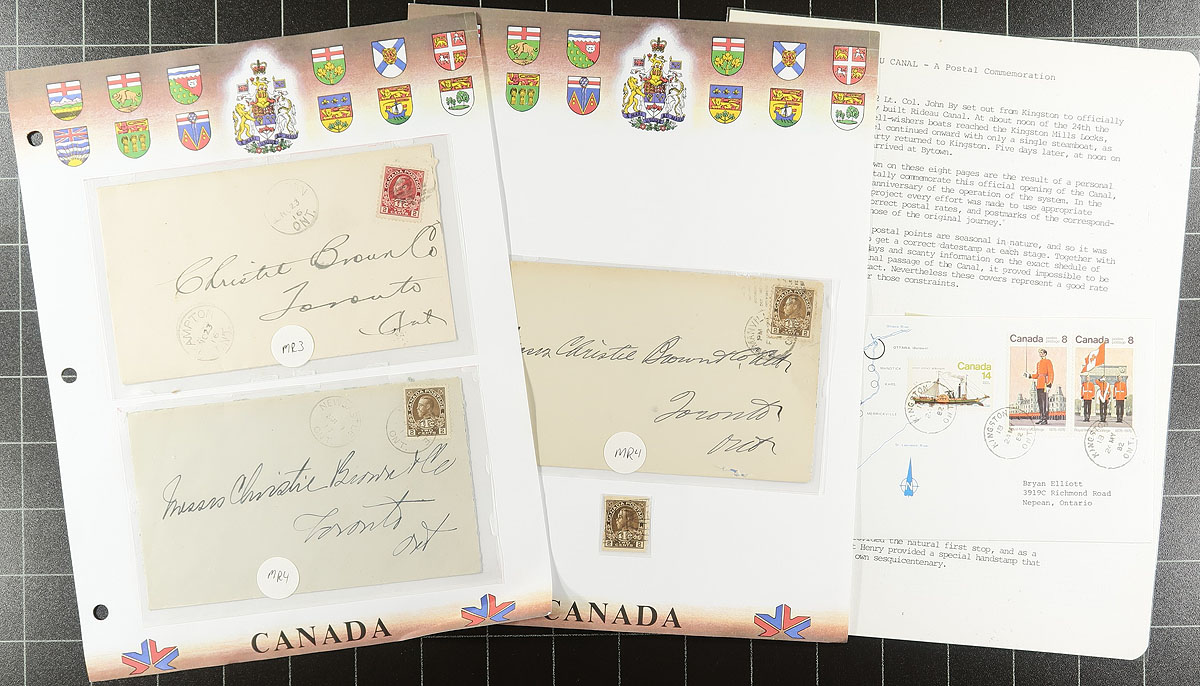 ONT.
Christie Brown Co
Toronto
Ont
AMPTON
MR3
Messrs Christie Brown & Co
Toronto
Ont
MR4
CANADA
Christie Brown & Co
Toronto
Ont
MR4
CANADA
U CANAL - A Postal Commemoration
Lt. Col. John By set out from Kingston to officially
built Rideau Canal. At about noon of the 24th the
ell-wishers boats reached the Kingston Mills Locks,
el continued onward with only a single steamboat, as
arty returned to Kingston. Five days later, at noon on
arrived at Bytown.
wn on these eight pages are the result of a personal
tally commemorate this official opening of the Canal,
anniversary of the operation of the system. In the
project every effort was made to use appropriate
orrect postal rates, and postmarks of the correspond-
hose of the original journey.
postal points are seasonal in nature, and so it was
o get a correct datestamp at each stage. Together with
ays and scanty information on the exact shedule of
nal passage of the Canal, it proved impossible to be
act. Nevertheless these covers represent a good rate
r those constraints.
Canada
14
Canada 8
Canada 8
KINGSTON
KINGSTON
KINGSTON
MERRICKVILLE
Bryan Elliott
3919C Richmond Road
Nepean, Ontario
ided the natural first stop, and as a
t Henry provided a special handstamp that
own sesquicentenary.